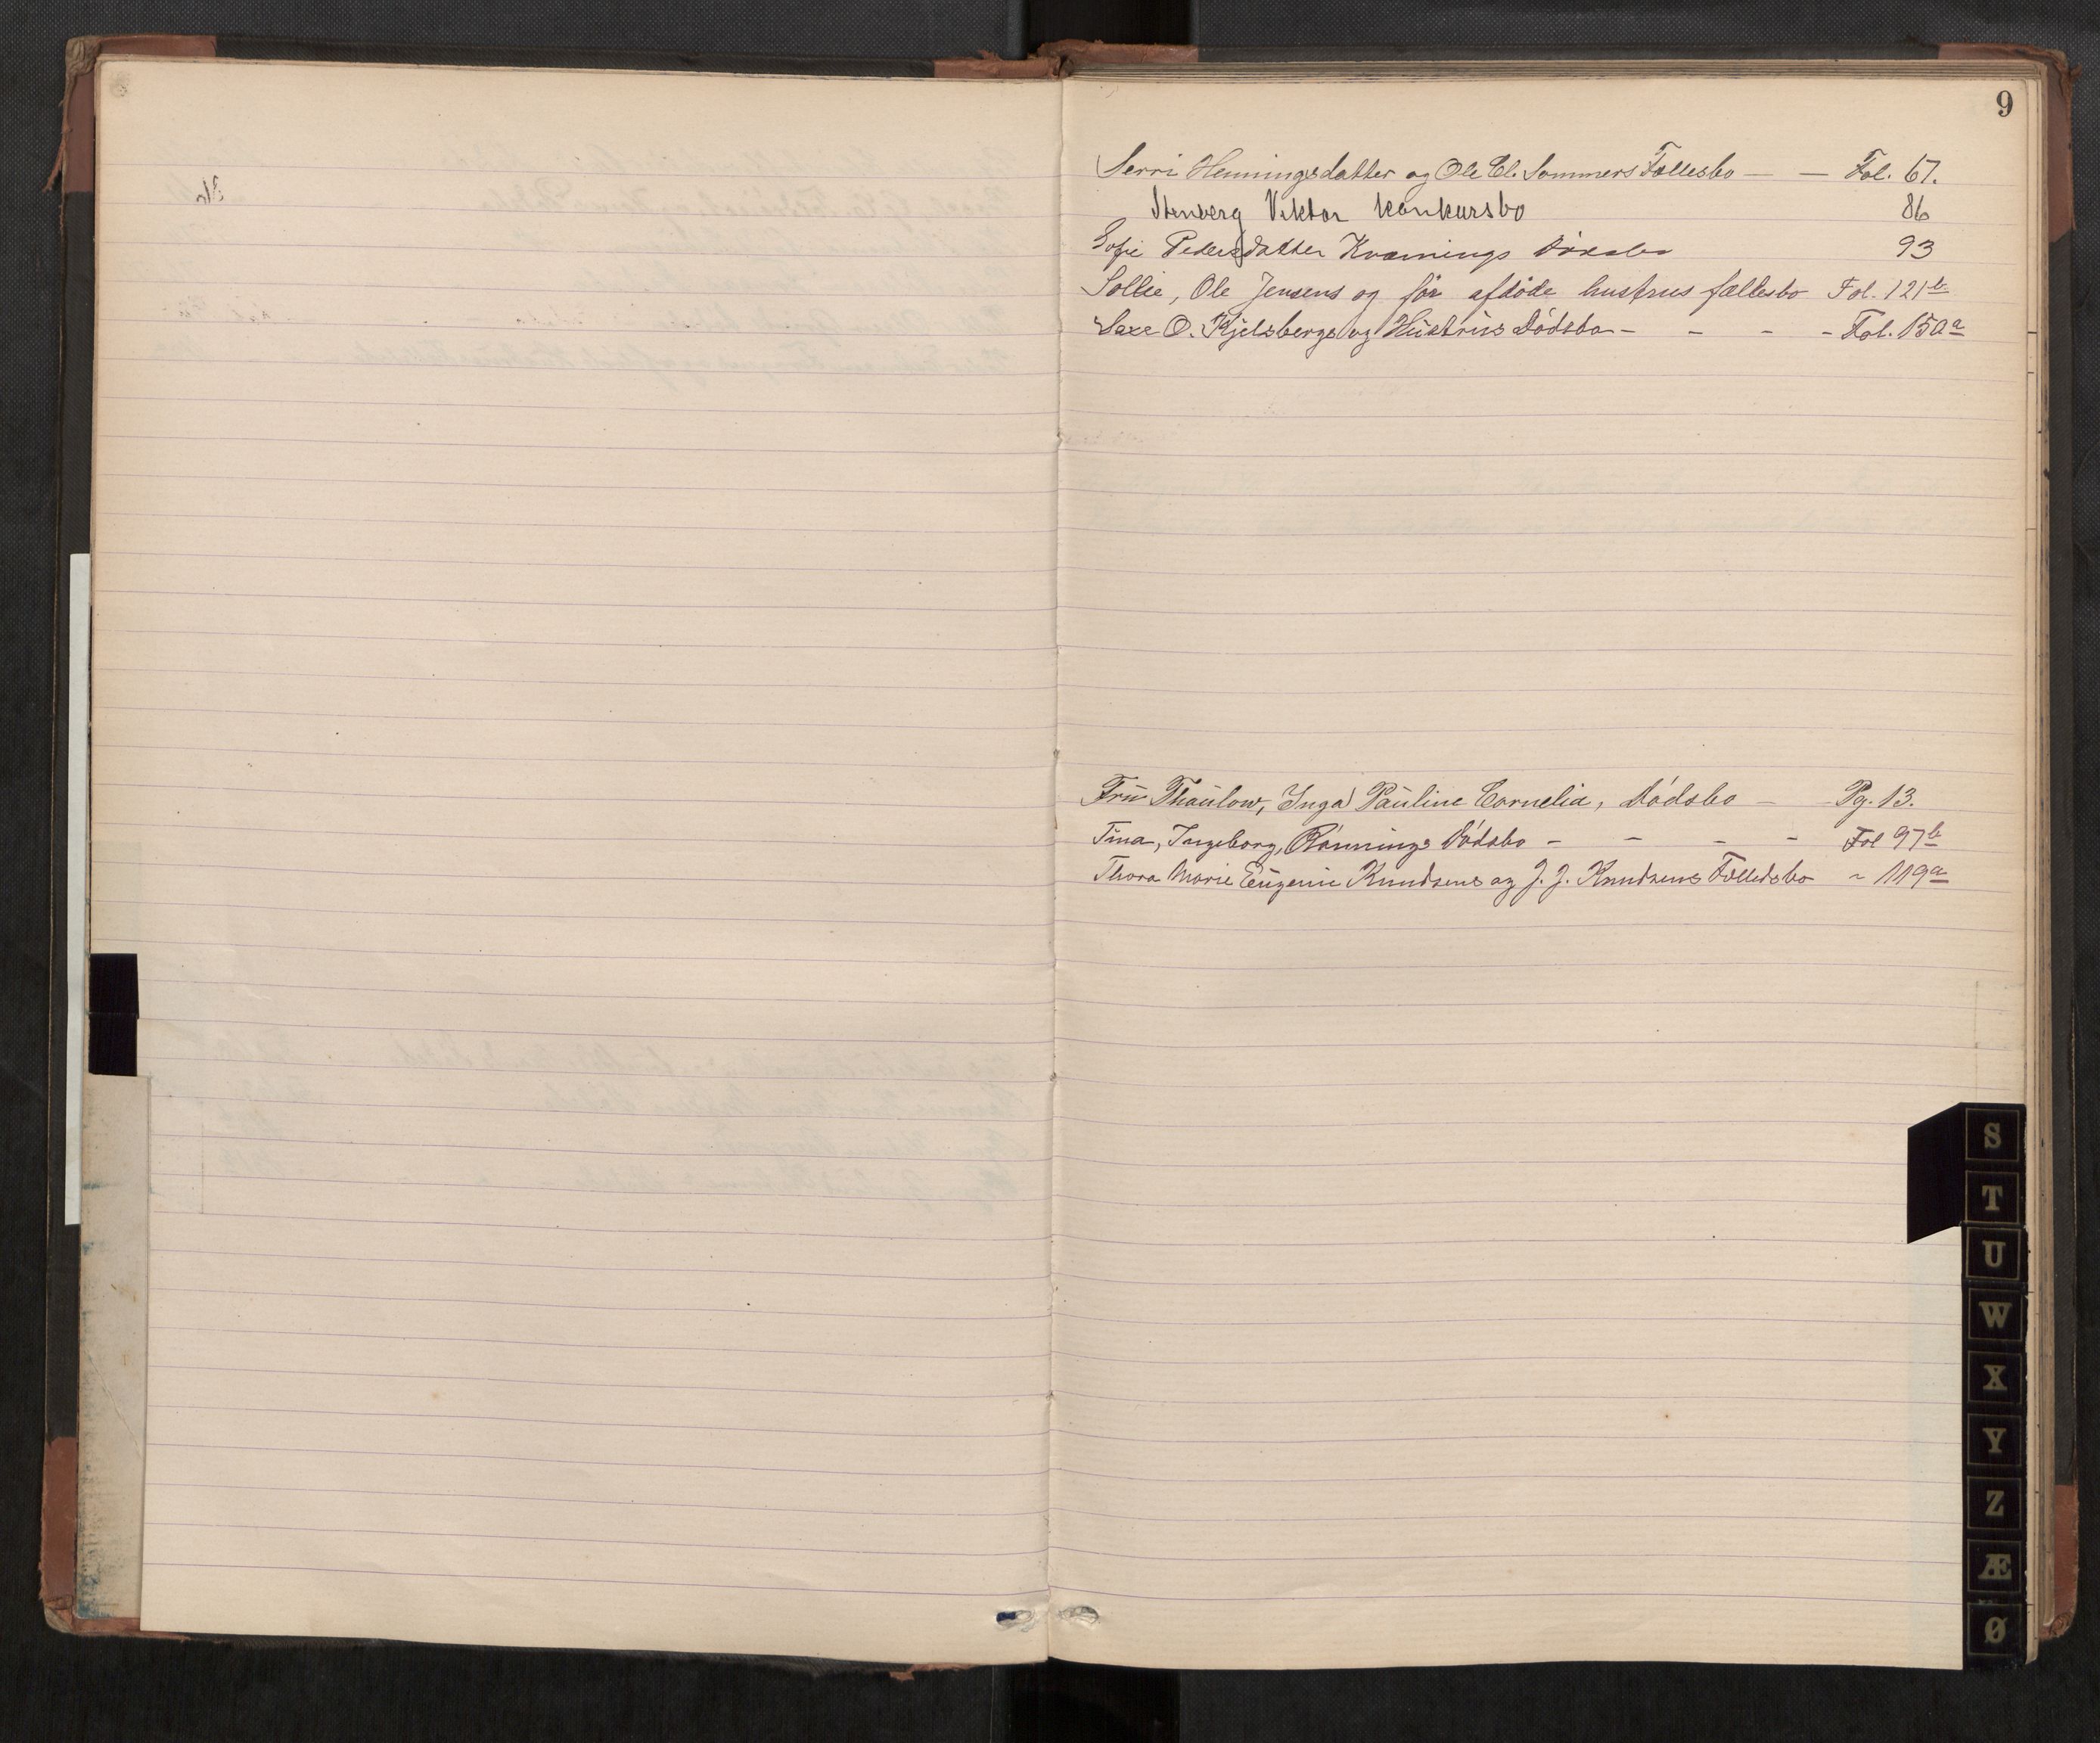 9
Serri Henningsdatter og Ole El. Sommers Fællesbo — — Fol. 67.
Stenberg Viktor konkursbo 86
Sofie Pedersdatter Kvamings Dødsbo 93
Sollie, Ole Jensens og før afdøde hustrus fællesbo Fol. 121b
Saxe O. Kjelsbergs og Hustrus Dødsbo - - - - Fol. 150a
Fru Thaulow, Inga Pauline Cornelia, Dødsbo — - Pg. 13.
Tina, Ingeborg, Rønnings Dødsbo - - - - Fol 97b
Thora Marie Eugenie Knudsens og J. J. Knudsens Fællesbo ~ 119a
S
T
U
W
X
Y
Z
Æ
Ø